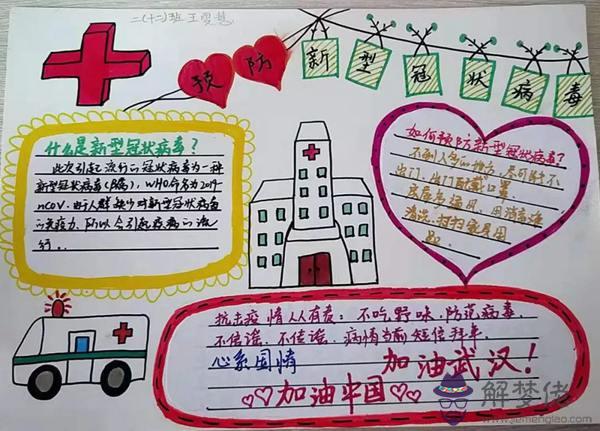 二(十二)班 王
预防新型冠状病毒
什么是新型冠状病毒？
此次引起流行的冠状病毒为一种
新型冠状病毒 WHO命名为2019-
nCOV. 由于人群缺少对新型冠状病毒
的免疫力，所以会引起疾病的流
行。
如何预防新型冠状病毒？
不到人多的地方，尽可能不
出门，出门配戴口罩，
房屋多通风，用消毒液
清洗，打扫家里用
品。
抗击疫情人人有责：不吃野味、防范病毒，
不信谣、不传谣、病情当前短信拜年
心系国情
加油武汉！
加油中国
解梦佬
www.jiemenglao.com